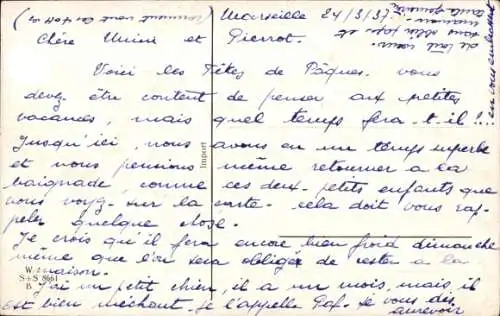 (comment vont les
Marseille 24/3/37.
Chère Mimi et Pierrot.
Voici les Fêtes de Pâques. vous
devez être content de penser aux petites
vacances, mais quel temps fera-t-il!...
Jusqu'ici, nous avons eu un temps superbe
et nous pensions même retourner à la
baignade, comme ces deux petits enfants que
vous voyez sur la carte. cela doit vous rap-
peler quelque chose.
Je crois qu'il fera encore bien froid dimanche
même que l'on sera obligé de rester à la
maison.
J'ai un petit chien, il a un mois, mais il
est bien méchant. je l'appelle Paf. Je vous dis
aurevoir
de tout cœur.
en vous embrassant
Import
W.
S+S 8661
B.